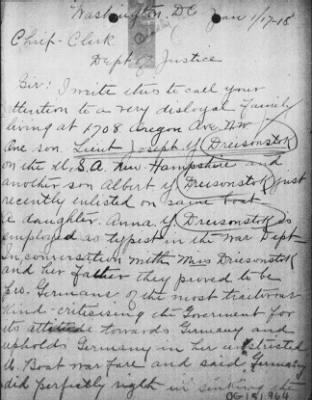 Washington, D.C. Jan 1/17-18
Chief-Clerk
Dept of Justice
Sir: I write this to call your
attention to a very disloyal family
living at 1708 Oregon Ave. N.W.
one son. Lieut Joseph Y. Dreisonstok
on the U.S.A. New Hampshire and
another son Albert Y. Dreisonstok just
recently enlisted on same boat
a daughter. Anna. Y. Dreisonstok is
employed as typest in the War Dept-
in conversation with Miss Driesonstok
and her father they proved to be
pro. Germans of the most traitorous
kind- criticising the Goverment for
its attitude towards Germany and
upholds Germany in her unrestricted
U. Boat war fare and said Germany
did perfectly right in sinking the
OG 151964